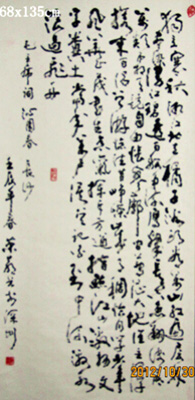 68x135cm
独立寒秋湘江北去橘子洲头看万山红遍层林
尽染漫江碧透百舸争流鹰击长空鱼翔浅底
万类霜天竞自由怅寥廓问苍茫大地谁主沉浮
携来百侣曾游忆往昔峥嵘岁月稠恰同学少年
风华正茂书生意气挥斥方遒指点江山激扬文
字粪土当年万户侯曾记否到中流击水
浪遏飞舟
毛主席词沁园春长沙
壬辰年春 书於深圳
2012/10/30